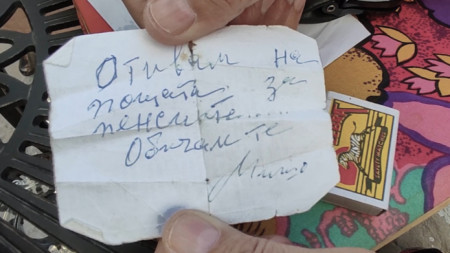 Отивам на
пощата за
пенсиите.....
Обичам те